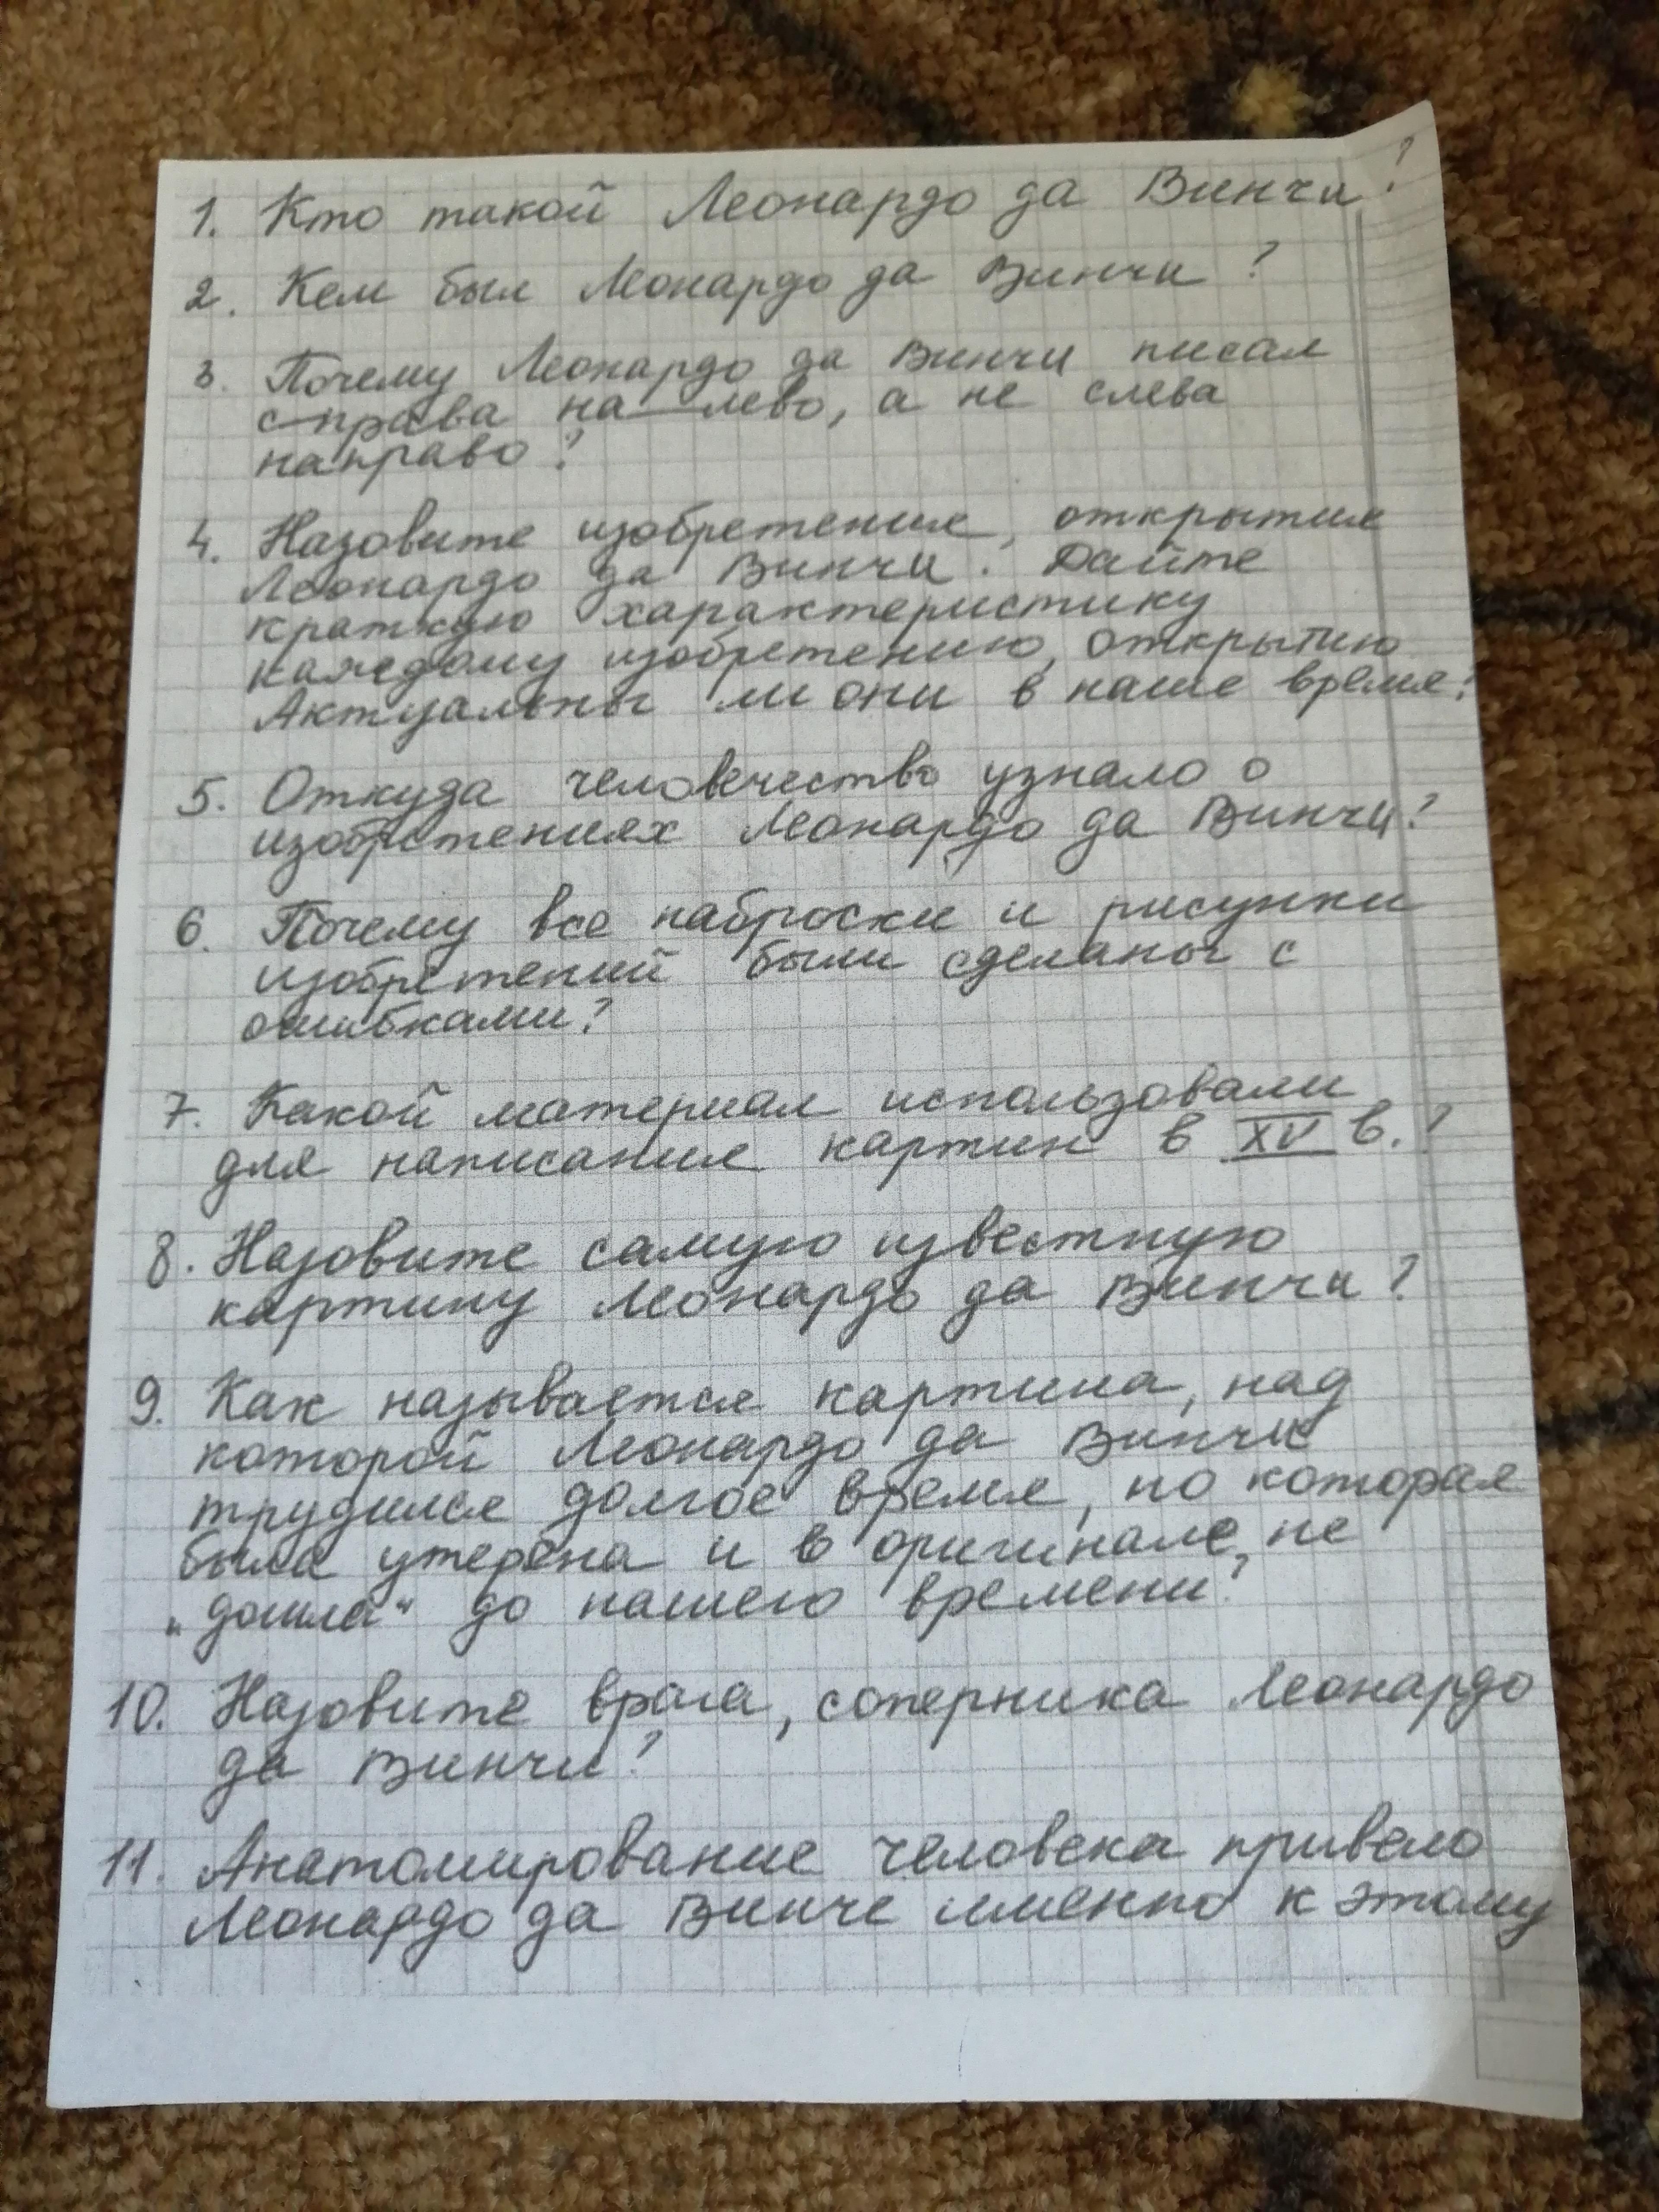 1. Кто такой Леонардо да Винчи?
2. Кем был Леонардо да Винчи?
3. Почему Леонардо да Винчи писал
справа на лево, а не слева
направо?
4. Назовите изобретения, открытия
Леонардо да Винчи. Дайте
краткую характеристику
каждому изобретению, открытию
Актуальны ли они в наше время?
5. Откуда человечество узнало о
изобретениях Леонардо да Винчи?
6. Почему все наброски и рисунки
изобретений были сделаны с
ошибками?
7. Какой материал использовали
для написания картин в XV в.?
8. Назовите самую известную
картину Леонардо да Винчи?
9. Как называется картина, над
которой Леонардо да Винчи
трудился долгое время, но которая
была утеряна и в оригинале не
„дошла“ до нашего времени?
10. Назовите врага, соперника Леонардо
да Винчи?
11. Анатомирование человека привело
Леонардо да Винче именно к этому